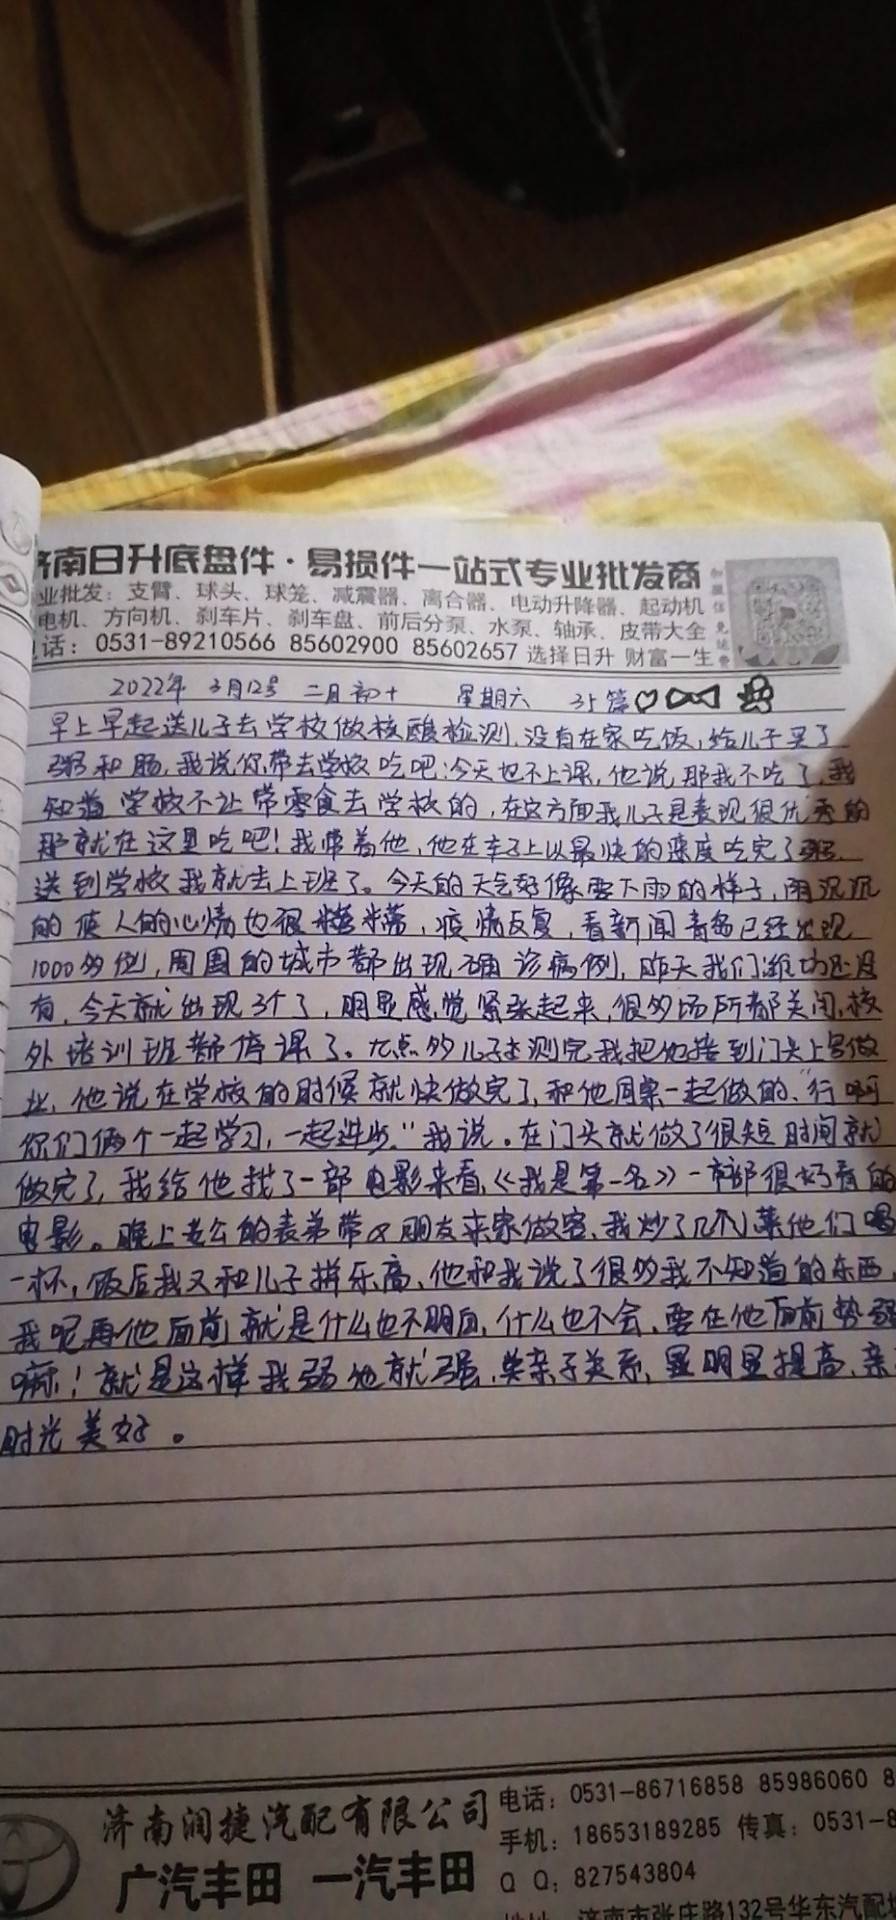 济南日升底盘件·易损件一站式专业批发商
业批发：支臂、球头、球笼、减震器、离合器、电动升降器、起动机
电机、方向机、刹车片、刹车盘、前后分泵、水泵、轴承、皮带大全
话：0531-89210566 85602900 85602657 选择日升 财富一生
2022年 3月12号 二月初十 星期六 35篇
早上早起送儿子去学校做核酸检测,没有在家吃饭,给儿子买了
粥和肠,我说你带去学校吃吧;今天也不上课,他说那我不吃了,我
知道学校不让带零食去学校的,在这方面我儿子是表现很优秀的
那就在这里吃吧!我带着他,他在车子上以最快的速度吃完了粥.
送到学校我就去上班了。今天的天气好像要下雨的样子,阴沉沉
的使人的心情也很糟糕,疫情反复,看新闻青岛已经出现
1000多例,周围的城市都出现确诊病例,昨天我们潍坊还没
有,今天就出现3个了,明显感觉紧张起来,很多场所都关闭,校
外培训班都停课了。九点多儿子测完我把他接到门头上写做
业,他说在学校的时候就快做完了,和他同桌一起做的,"行啊
你们俩个一起学习,一起进步."我说。在门头就做了很短时间就
做完了,我给他找了一部电影来看,《我是第一名》一部很好看的
电影。晚上老公的表弟带朋友来家做客,我炒了几个菜他们喝
一杯,饭后我又和儿子拼乐高,他和我说了很多我不知道的东西,
我呢再他面前就是什么也不明白,什么也不会,要在他面前势弱
嘛!就是这样我弱他就强,亲子关系,明显提高,亲
时光美好。
济南润捷汽配有限公司
广汽丰田 一汽丰田
电话：0531-86716858 85986060 8
手机：18653189285 传真：0531-8
Q Q：827543804
济南市张庄路132号华东汽配